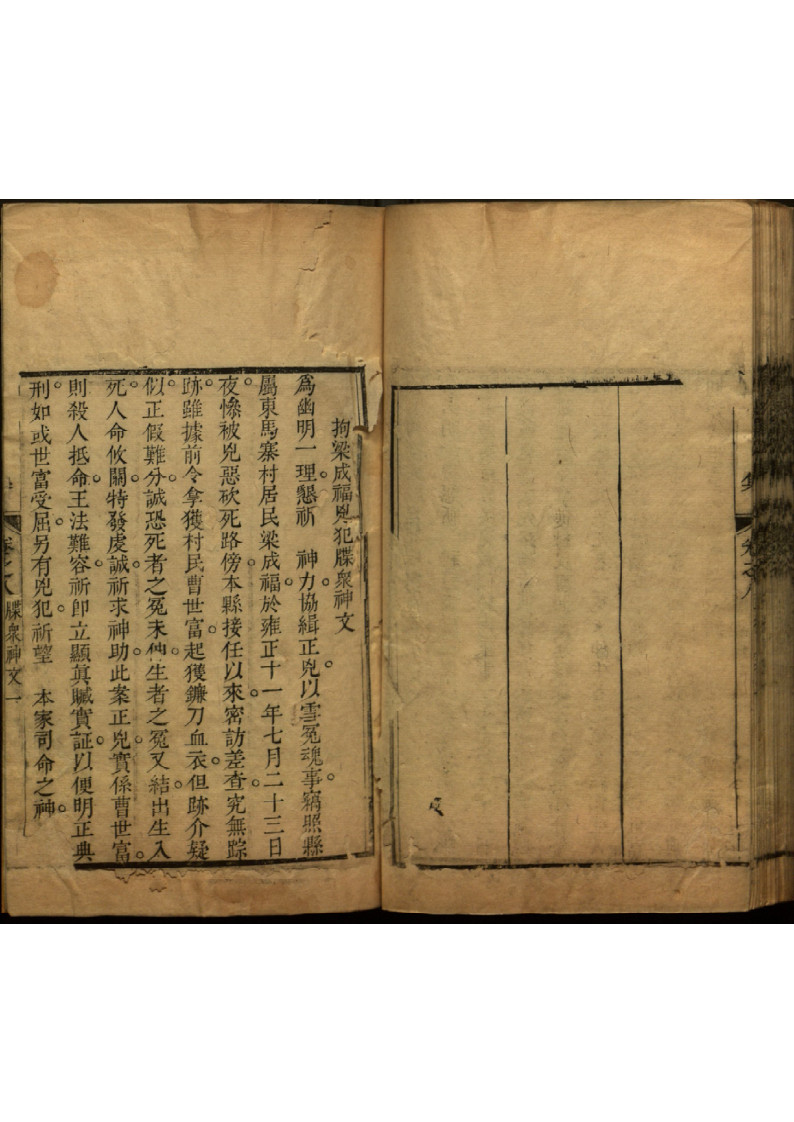 拘梁成福兇犯牒衆神文
為幽明一理懇祈　神力協緝正兇以雪冤魂事竊照縣
屬東馬寨村居民梁成福於雍正十一年七月二十三日
夜慘被兇惡砍死路傍本縣接任以來密訪差查究無踪
跡雖據前令拿獲村民曹世富起獲鐮刀血衣但跡介疑
似正假難分誠恐死者之冤未伸生者之冤又結出生入
死人命攸關特發虔誠祈求神助此案正兇實係曹世富
則殺人抵命王法難容祈即立顯真贓實証以便明正典
刑如或世富受屈另有兇犯祈望　本家司命之神
卷之八　牒衆神文　一